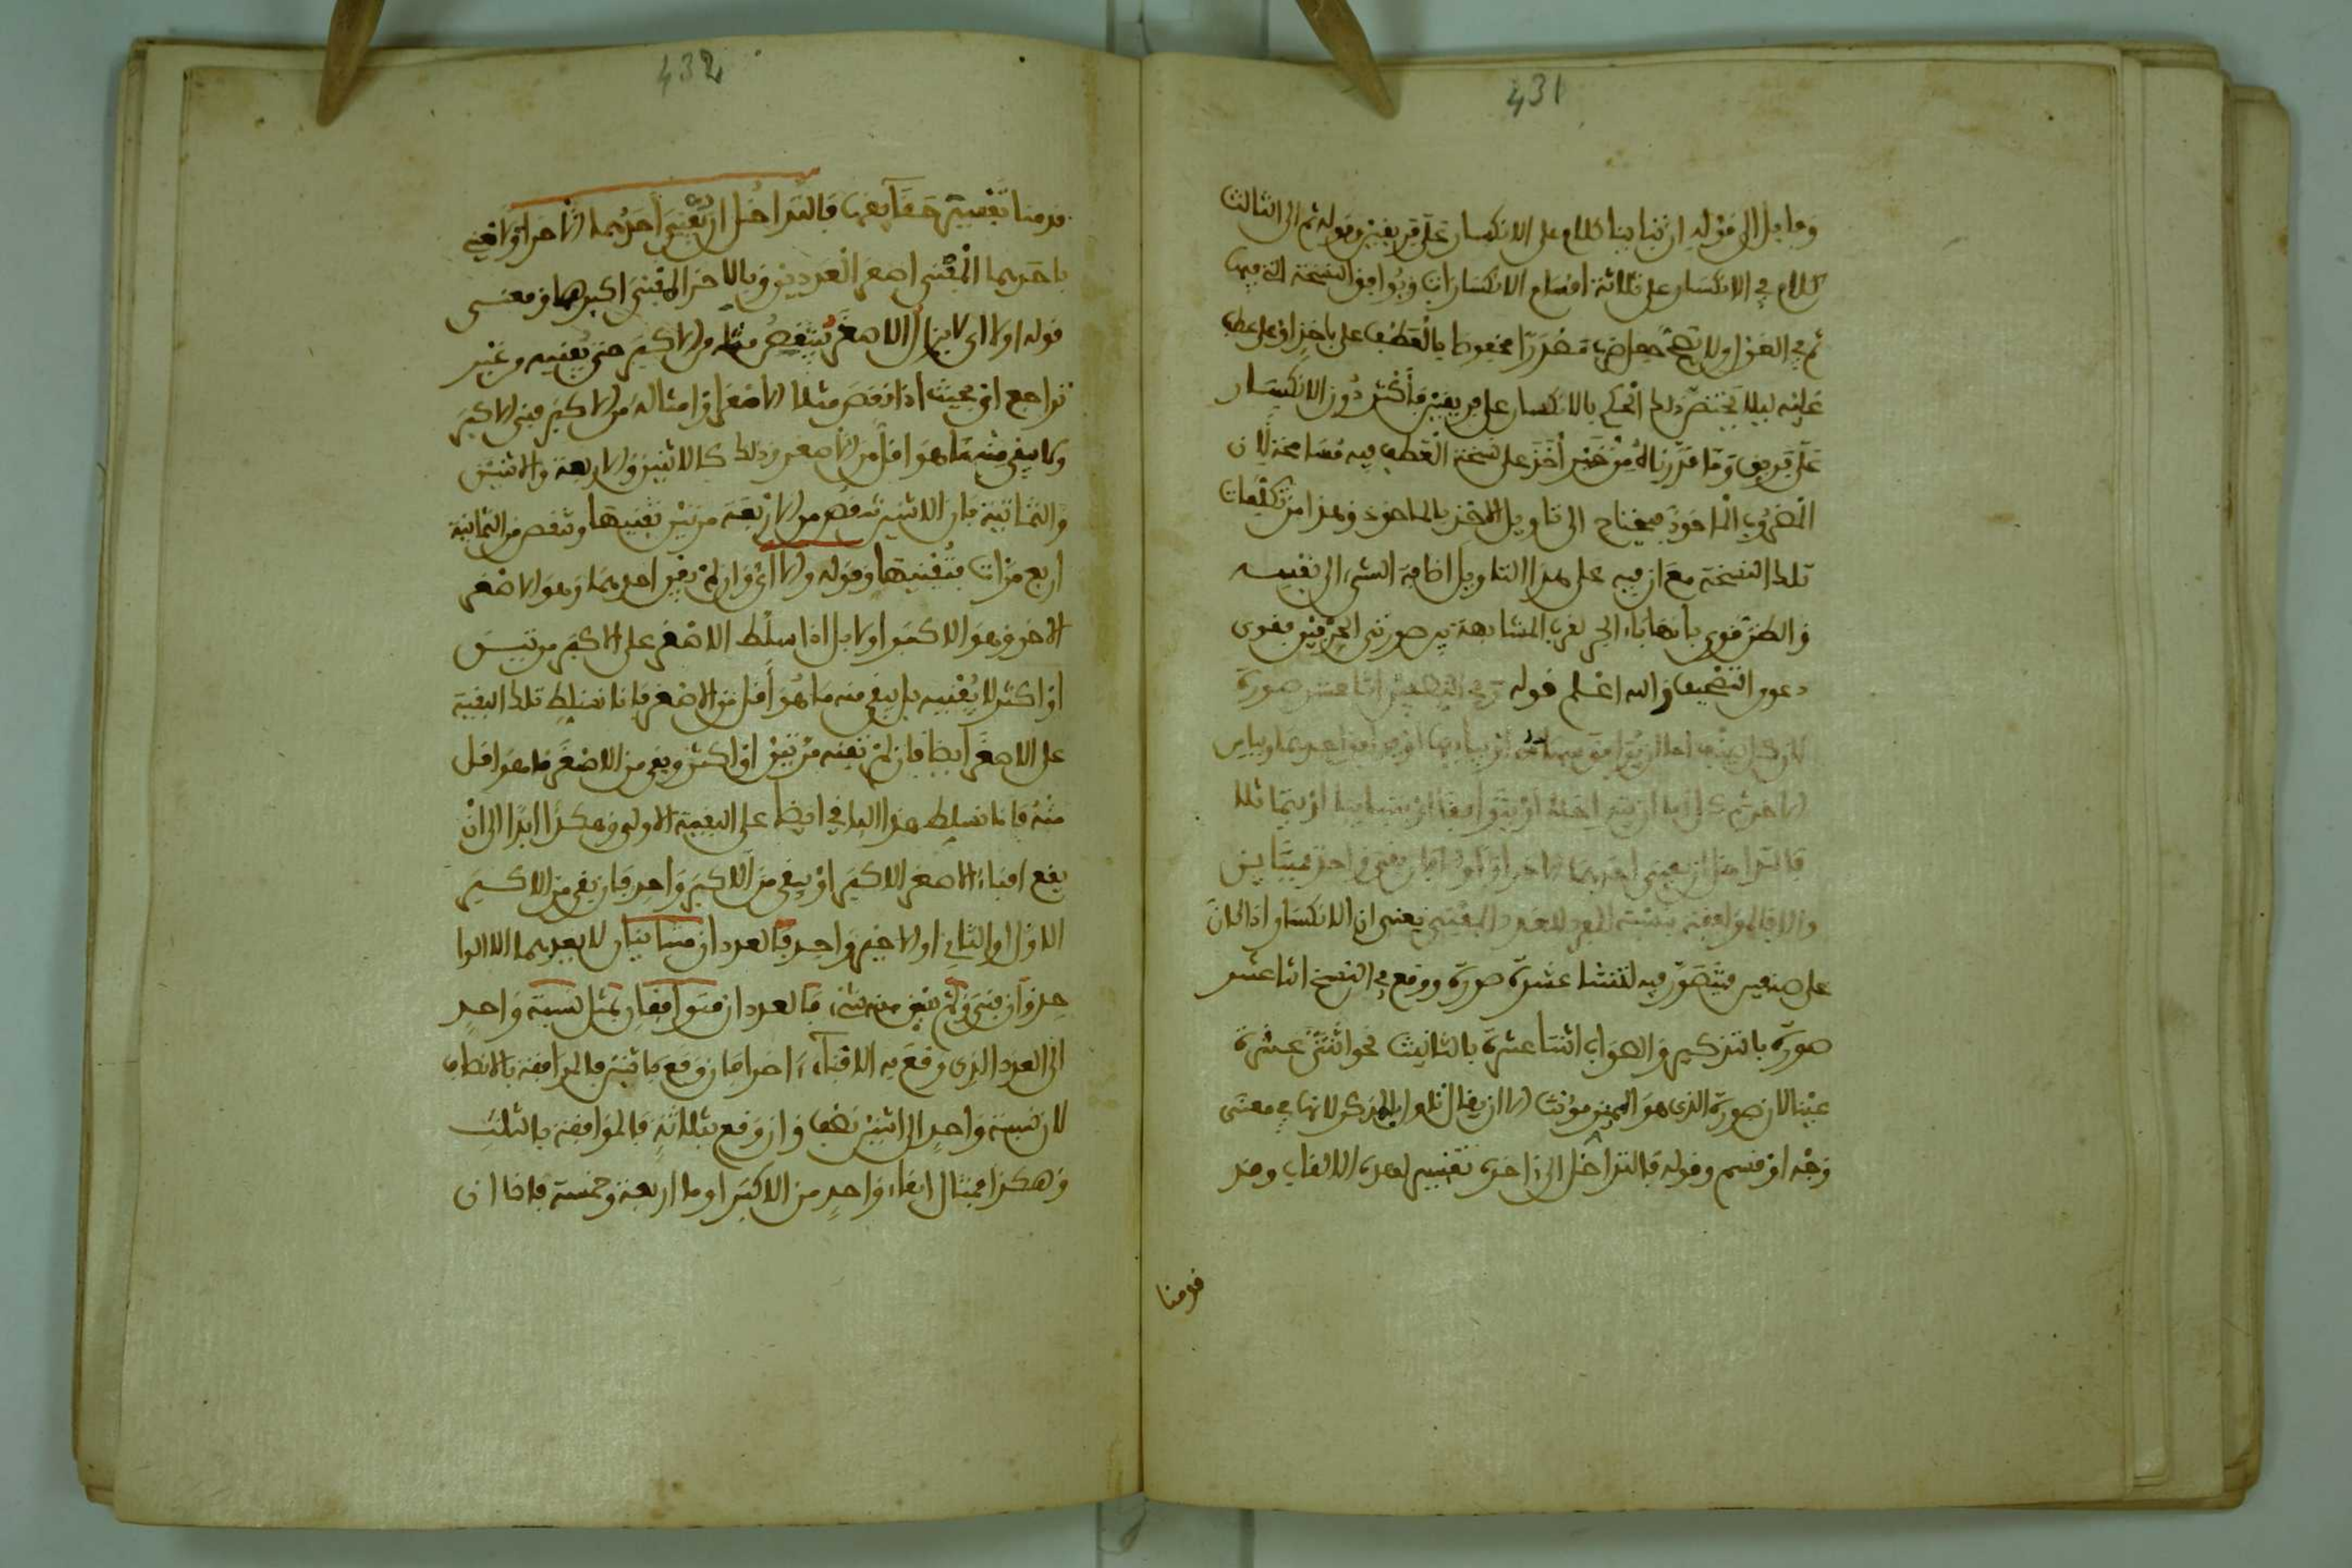 431
وما بل الى قوله ان تباينا كلام على الانكسار على فريفين وقوله ثم الى الثالث
كلام في الانكسار على ثلاثة اقسام الانكسارات ويوافق النسخة التي فيها
عليه ليلا يختص ذلك الحكم بالانكسار على فريقين فأكثر دون الانكسار
على فريق وما قررناه من خبر أخذ على نسخة العطف فيه مسامحة لان
المضروب الماخوذ فيحتاج الى تاويل الاخذ بالماخوذ وهذا من تكلفات
تلك النسخة مع ان فيه على هذا التاويل اضافة الشيء الى نفسه
والظن قوي بانها باء الجر لقرب المشابهة في صورتي الحرفين فقوى
دعوى التصحيف والله اعلم قوله ثم بين التصحيح اثنا عشر صورة
لان كل صنف اما ان يوافق سهامه او يباينها او يوافق احدهما ويباين
الاخر ثم كل اما ان يتداخلا او يتوافقا او يتباينا او يتماثلا
فالتداخل ان يفني احدهما الاخر اولا وان بقي واحد فمتباين
والا فالموافقة بنسبة المفرد للعدد المفني يعني ان الانكسار اذا كان
على صنفين فيتصور فيه اثنتا عشرة صورة ووقع في النسخ اثنا عشر
صورة بالتذكير والصواب اثنتا عشرة بالتانيث نحو اثنتي عشرة
عينا لان صورة الذي هو المميز مؤنث الا ان يقال تاولها بالمذكر لانها في معنى
وجه او قسم وقوله فالتداخل الى اخره تفسير لهذه الالقاب وقد
قدمنا
432
قدمنا تفسير حقايقها فالتداخل ان يفني احدهما الاخر اولا يعني
باحدهما المفني اصغر العددين وبالاخر المفنى اكبرهما ومعنى
قوله اولا اي لا يزال الاصغر ينتقص مثله من الاكبر حتى يفنيه من غير
تراجع او بحيث اذا نقص مثل الاصغر او امثاله من الاكبر فني الاكبر
ولا يبقى منه ما هو اقل من الاصغر وذلك كالاثنين والاربعة والاثنين
والثمانية فان الاثنين تنقص من الاربعة مرتين تفنيها وتنقص من الثمانية
اربع مرات فتفنيها وقوله والا اي وان لم يفن احدهما وهو الاصغر
الاخر وهو الاكبر اولا بل اذا سلط الاصغر على الاكبر مرتين
او اكثر لا يفنيه بل يبقى منه ما هو أقل من الاصغر فانا نسلط تلك البقية
على الاصغر ايضا فان لم تفنه مرتين او اكثر وبقي من الاصغر ما هو اقل
منه فانا نسلط هذا الباقي ايضا على البقية الاولى وهكذا ابدا الى ان
يقع افناء الاصغر الاكبر او يبقى من الاكبر واحد فان بقي من الاكبر
الاول او الثاني او الاخير واحد فالعددان متباينان لا يعدهما الا الوا
حد وان فني ولم يبق منه شيء فالعددان متوافقان بمثل نسبة واحد
الى العدد الذي وقع به الافناء اخرا فان وقع باثنين فالموافقة بالانصاف
لان نسبة واحد الى اثنين نصف وان وقع بثلاثة فالموافقة بالثلث
وهكذا فمثال ابقاء واحد من الاكبر اولا اربعة وخمسة فاذا ان